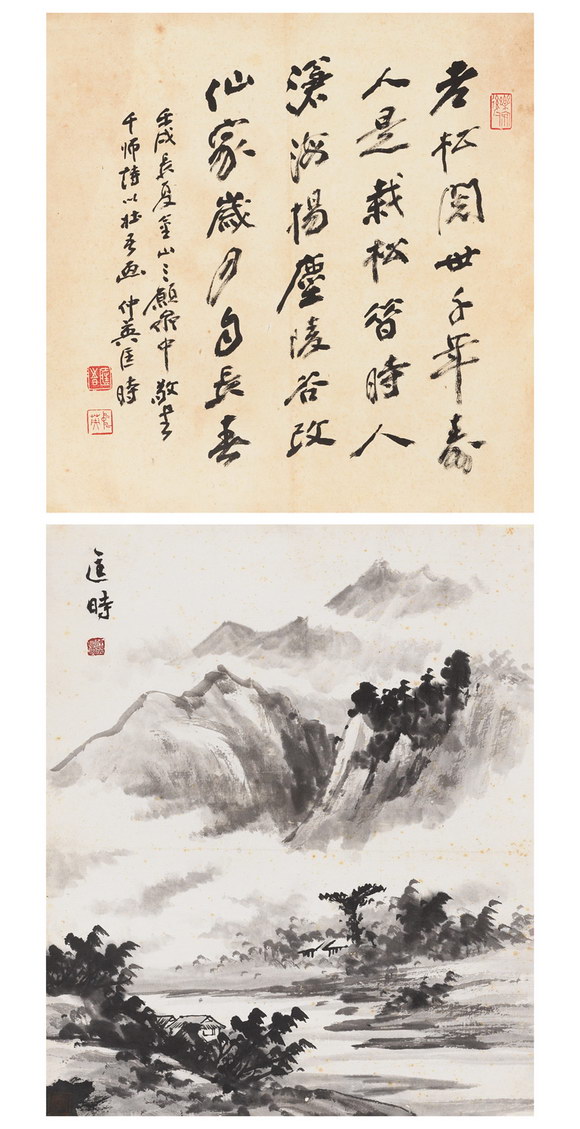 老松閱世千年壽
人是栽松時人
滄海揚塵陵谷改
仙家歲月自長春
壬戌長夏金山願中敬書
千師詩以吾畫 仲英匡時
匡時